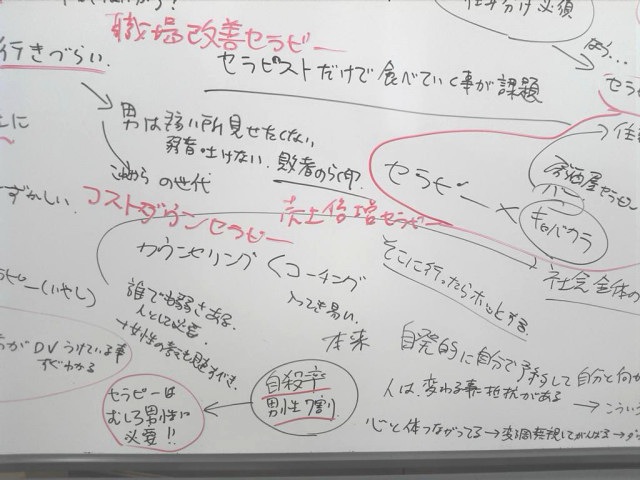 仕分け必須
職場改善セラピー
行きづらい.
セラピストだけで食べていく事が課題
男は弱い所見せたくない,
弱音吐けない. 敗者のらく印.
これからの世代
セラピー ×
居酒屋セラピー
バー
キャバクラ
コストダウンセラピー
売上倍増セラピー
カウンセリング < コーチング
入ってき易い.
本来
そこに行ったらホッとする
社会全体の
セラピー(いやし)
誰でも弱さある.
人として必要.
DVうけている事
すぐわかる
自発的に自分で
して自分と向か
人は,変わる事に抵抗がある
こうい
心と体つながってる→
セラピーは
むしろ男性に
必要!!
自殺率
男性7割.